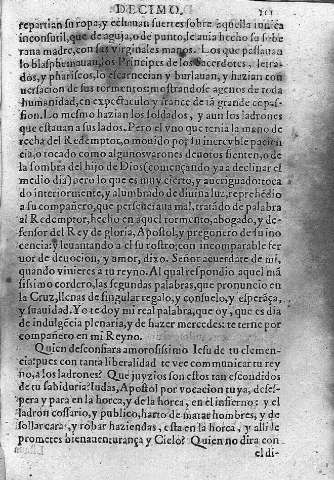 DECIMO. 211
repartian su ropa, y echauan suertes sobre aquella tunica
inconsutil, que de aguja, o de punto, le auia hecho su sobe
rana madre, con sus virginales manos. Los que passauan
lo blasphemauan, los Principes de los Sacerdotes, letra-
dos, y phariseos, lo escarnecian y burlauan, y hazian con
uersacion de sus tormentos: mostrandose agenos de toda
humanidad, en expectaculo y trance de tã grande copas-
sion. Lo mesmo hazian los soldados, y aun los ladrones
que estauan a sus lados. Pero el vno que tenia la mano de
recha del Redemptor, o mouido por su increyble pacien
cia, o tocado como algunos varones deuotos sienten, o de
la sombra del hijo de Dios (començando ya a declinar el
medio dia) por lo que es muy cierto, y aueriguado: toca
do interiormente, y alumbrado de diuina luz, reprehẽdio
a su compañero, que perseueraua mal, tratãdo de palabra
al Redemptor, hecho en aquel tormẽto, abogado, y de-
fensor del Rey de gloria, Apostol, y pregonero de su ino
cencia: y leuantando a el su rostro, con incomparable fer
uor de deuocion, y amor, dixo. Señor acuerdate de mi,
quando vinieres a tu reyno. Al qual respondio aquel mã
sissimo cordero, las segundas palabras, que pronuncio en
la Cruz, llenas de singular regalo, y consuelo, y esperãça,
y suauidad. Yo te doy mi real palabra, que oy, que es dia
de indulgẽcia plenaria, y de hazer mercedes: te terne por
compañero en mi Reyno.
Quien desconfiara amorosissimo Iesu de tu clemen-
cia: pues con tanta liberalidad te vee communicar tu rey
no, a los ladrones? Que juyzios son estos tan escondidos
de tu sabiduria: Iudas, Apostol por vocacion tuya, deses-
pera y para en la horca, y de la horca, en el infierno: y el
ladron cossario, y publico, harto de matar hombres, y de
sollar caras, y robar haziendas, esta en la horca, y alli le
prometes bienauenturança y Cielo? Quien no dira con
el di-